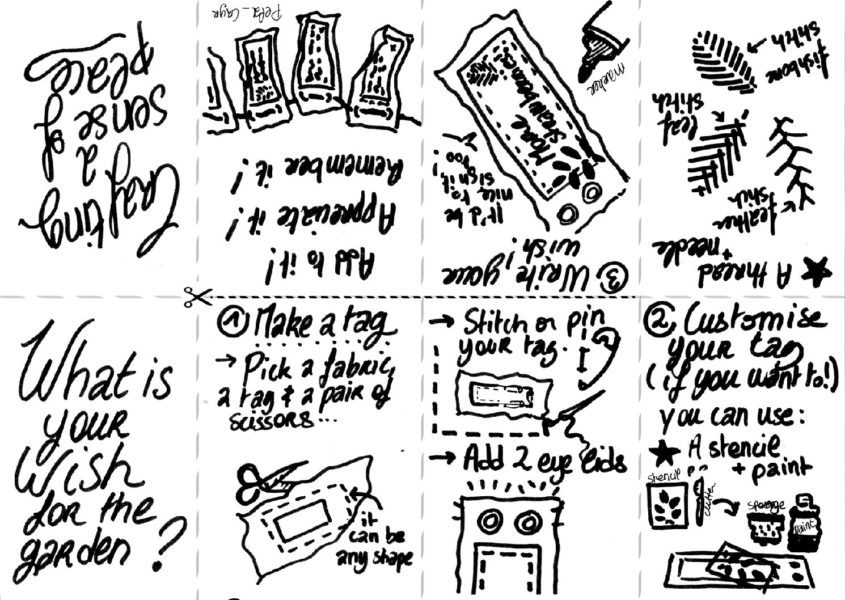 What is
your
wish
for the
garden?
① Make a tag
→ Pick a fabric,
a tag & a pair of
scissors...
it
can be
any shape
→ Stitch or pin
your tag.
→ Add 2 eye lids
② Customise
your tag
(if you want to!)
you can use:
★ A stencil
+ paint
stencil
cutter
sponge
paint
★ A thread
+ needle
feather
stich
leaf
stitch
fishbone
stitch
③ Write your
wish!
It'd be
nice to
sign it,
too!
More
Strawberries
marker
Add to it!
Appreciate it!
Remember it!
Crafting
a
sense of
place